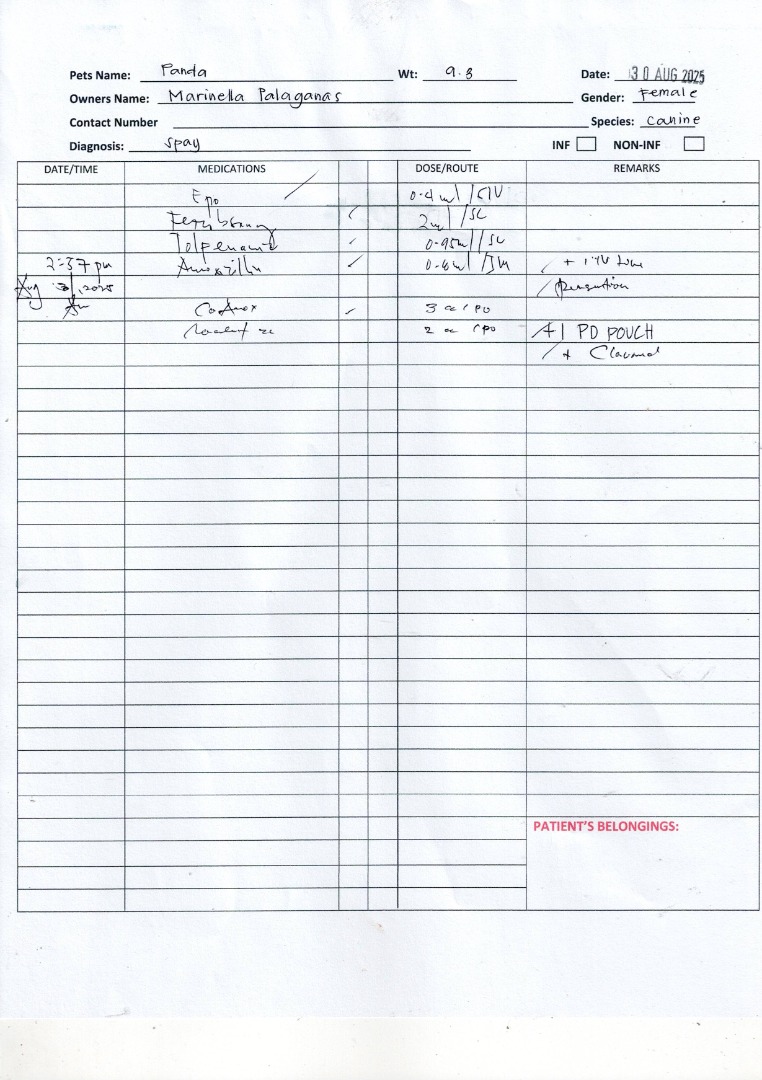 Pets Name: Panda Wt: 9.3 Date: 30 AUG 2025
Owners Name: Marinella Palaganas Gender: Female
Contact Number Species: canine
Diagnosis: spay INF NON-INF
DATE/TIME MEDICATIONS DOSE/ROUTE REMARKS
Epo 0.4 ml /SIV
2ml /SC
Tolfenamic 0.95ml /SC
2:37 pm Amoxicillin 0.6ml /IM + IV Line
Aug 31, 2025
Am CoAmox 3 cc / po
2 cc / po A/ PD POUCH
PATIENT'S BELONGINGS: